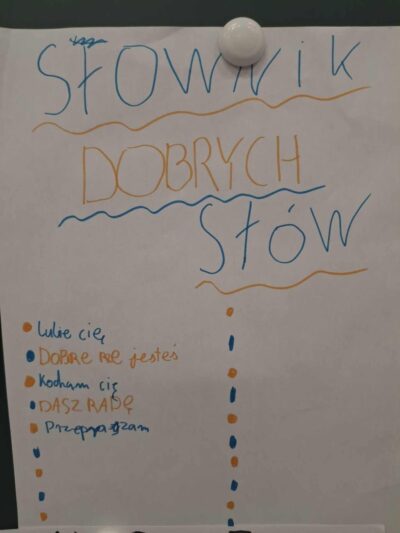 SŁOWNIK
DOBRYCH
SŁÓW
Lubie cię
DOBRE że jesteś
Kocham cię
DASZ RADĘ
Przepraszam